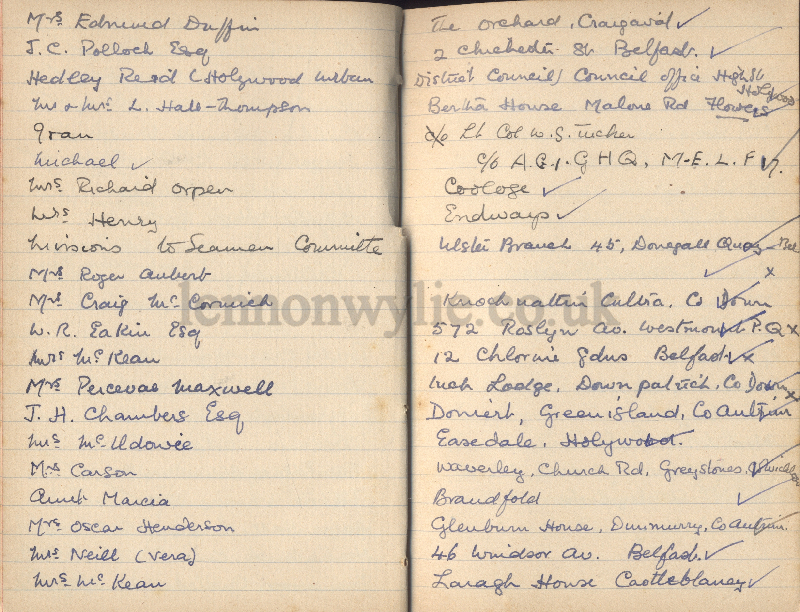 Mrs Edmund Duffin The Orchard, Craigavad ✓
J. C. Pollock Esq 2 Chichester St Belfast. ✓
Hedley Reid (Holywood Urban District Council) Council office High St Holywood
Mr & Mrs L. Hall-Thompson Bertha House Malone Rd Flowers
Ivan c/o Lt Col W. G. Tucker
Michael ✓ c/o A.G.1. G H Q, M.E.L.F 17.
Mrs Richard Orpen Coologe ✓
Mrs Henry Endways ✓
Missions to Seamen Committe Ulster Branch 45, Donegall Quay - Bel
Mrs Roger Aubert ✓ x
Mrs Craig McCormick Cultra, Co Down
lennonwylie.co.uk
W. R. Eakin Esq 572 Roslyn Av. Westmount P.Q x
Mrs McKean 12 Chlorine Gdns Belfast ✓ x
Mrs Perceval Maxwell Inch Lodge, Downpatrick, Co Down x
J. H. Chambers Esq Greenisland, Co Antrim
Mrs Easedale, Holywood.
Mrs Carson Waverley, Church Rd, Greystones,
Aunt Marcia Brandfold ✓
Mrs Oscar Henderson Glenburn House, Dunmurry, Co Antrim.
Mrs Neill (Vera) 46 Windsor Av. Belfast. ✓
Mrs McKean Laragh House Castleblaney ✓